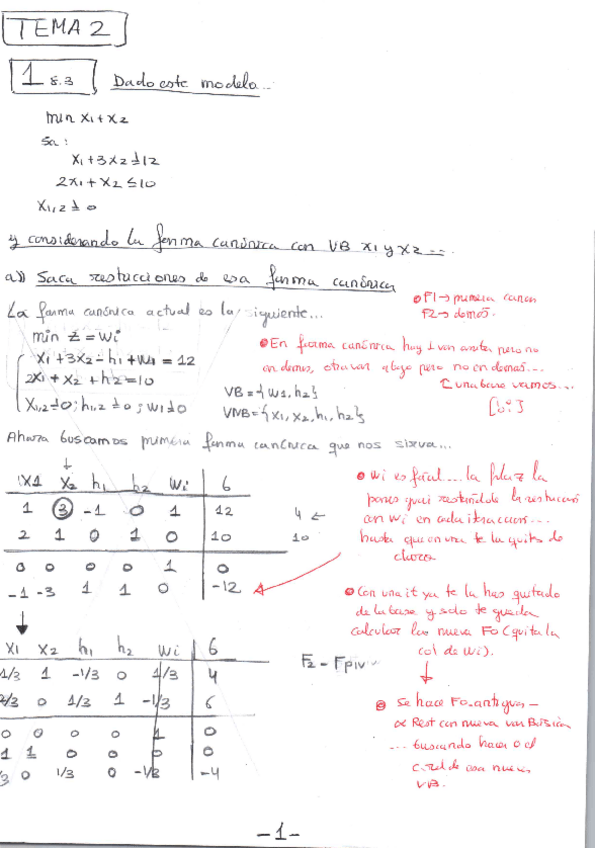 TEMA 2
1 8.3 Dado este modelo...
min x1 + x2
sa:
x1 + 3x2 ≥ 12
2x1 + x2 ≤ 10
x1,2 ≥ 0
y considerando la forma canónica con VB x1 y x2 ...
a)) Saca restricciones de esa forma canónica
La forma canónica actual es la siguiente...
min Z = wi
x1 + 3x2 - h1 + w1 = 12
2x1 + x2 + h2 = 10
x1,2 ≥ 0; h1,2 ≥ 0; w1 ≥ 0
VB = {w1, h2}
VNB = {x1, x2, h1, h2}
F1 → primera canon
F2 → demás.
En forma canónica hay 1 var antes pero no
en demás, otra var abajo pero no en demás...
una base vamos...
Ahora buscamos primera forma canónica que nos sirva...
x1 x2 h1 h2 wi b
1 3 -1 0 1 12 4 ←
2 1 0 1 0 10 10
0 0 0 0 1 0
-1 -3 1 1 0 -12
wi es fácil.... la fila 2 la
pones guai restándole la restricción
con wi en cada iteración...
hasta que en una te la quitas de
chorra
Con una it ya te la has quitado
de la base y solo te queda
calcular la nueva Fo (quita la
col de wi).
x1 x2 h1 h2 wi b
1/3 1 -1/3 0 1/3 4
0 1/3 1 -1/3 6
0 0 0 0 1 0
1 1 0 0 0 0
0 1/3 0 -1/3 -4
F2 - Fpiv
Se hace Fo antigua -
α Rest con nueva var Básica
... buscando hacer 0 el
c. red de esa nueva
VB.
-1-